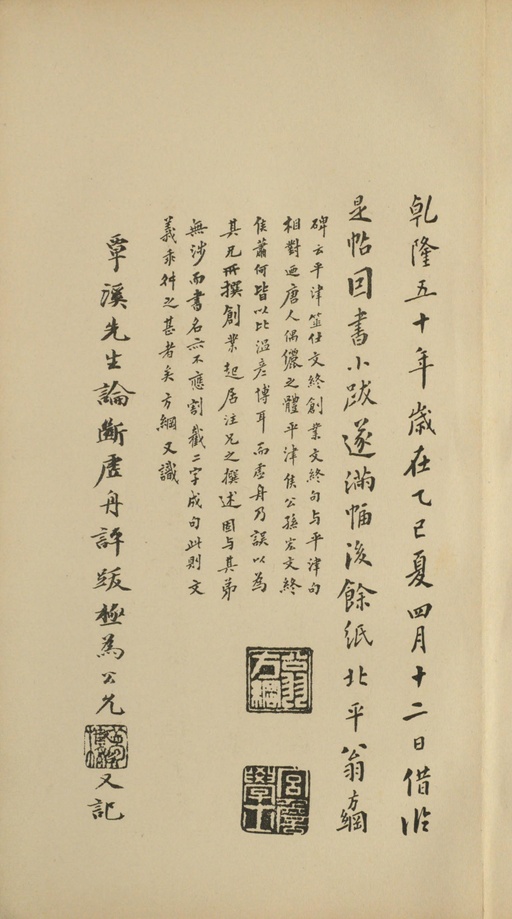 乾隆五十年歲在乙巳夏四月十二日借臨
是帖回書小跋遂滿幅後餘紙北平翁方綱
碑云平津筮仕文終創業文終句与平津句
相對迺唐人偶儷之體平津侯公孫宏文終
侯蕭何皆以比溫彥博耳而虛舟乃誤以為
其兄所撰創業起居注兄之撰述固与其弟
無涉而書名亦不應割截二字成句此則文
義乖舛之甚者矣方綱又識
翁方綱
覃溪先生論斷虛舟許跋極為公允
又記